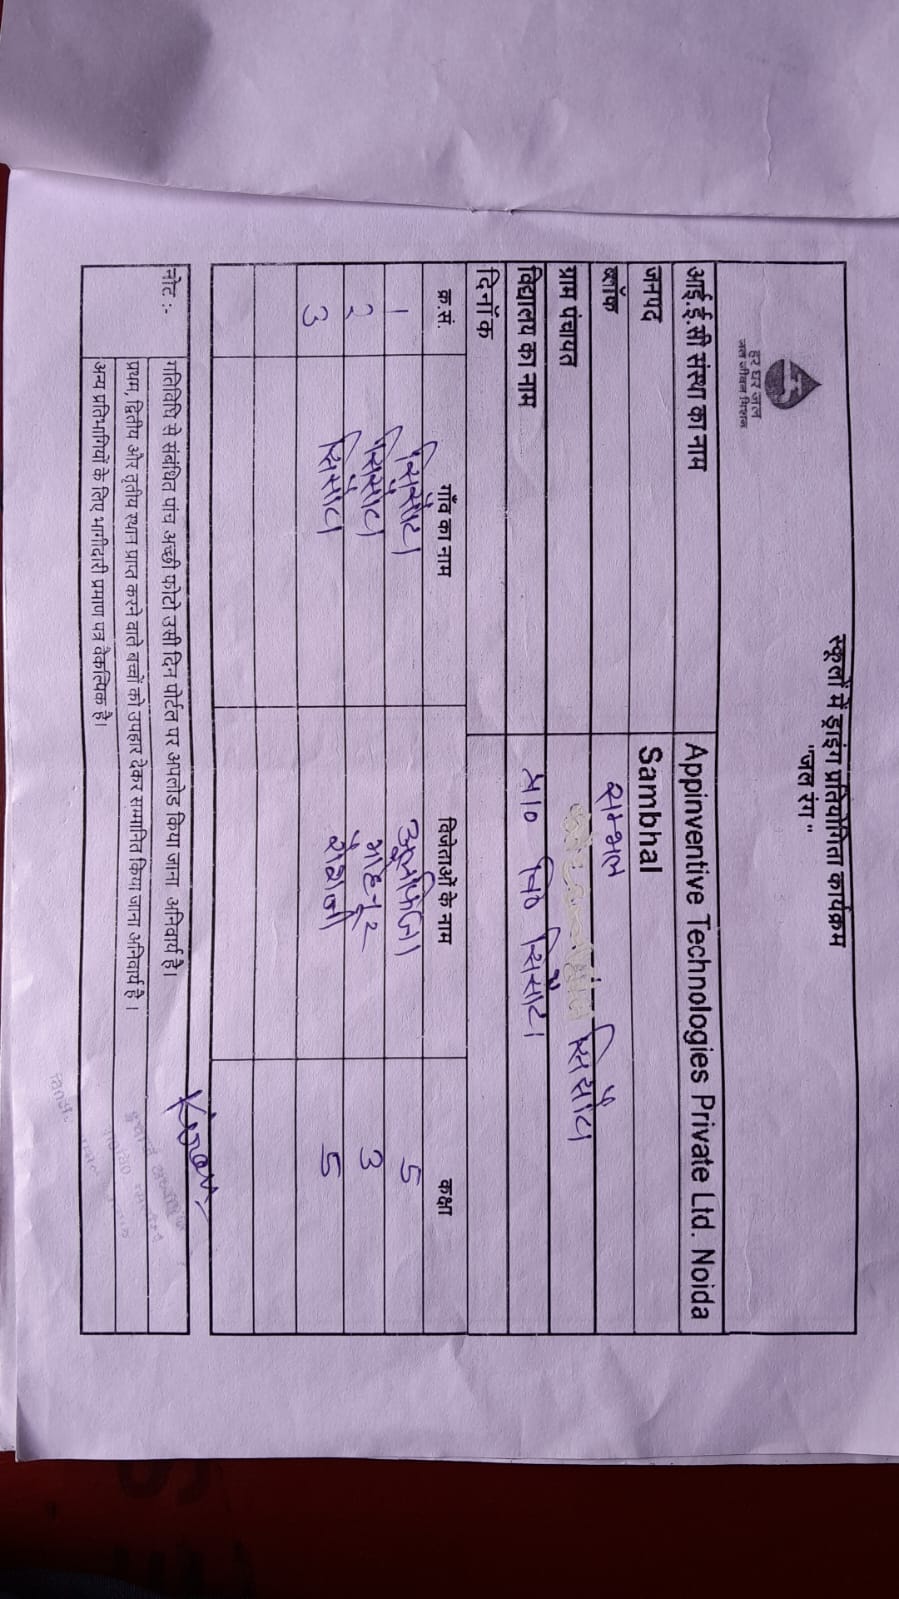 स्कूलों में ड्राइंग प्रतियोगिता कार्यक्रम
"जल रंग"
हर घर जल
जल जीवन मिशन
आई.ई.सी संस्था का नाम Appinventive Technologies Private Ltd. Noida
जनपद Sambhal
ब्लॉक सम्भल
ग्राम पंचायत सिसौटा
विद्यालय का नाम प्रा० वि० सिसौटा
दिनाँक
क्र.सं. गाँव का नाम विजेताओं के नाम कक्षा
1 सिसौटा 5
2 सिसौटा 3
3 सिसौटा रोशनी 5
नोट :- गतिविधि से संबंधित पांच अच्छी फोटो उसी दिन पोर्टल पर अपलोड किया जाना अनिवार्य है।
प्रथम, द्वितीय और तृतीय स्थान प्राप्त करने वाले बच्चों को उपहार देकर सम्मानित किया जाना अनिवार्य है।
अन्य प्रतिभागियों के लिए भागीदारी प्रमाण पत्र वैकल्पिक है।